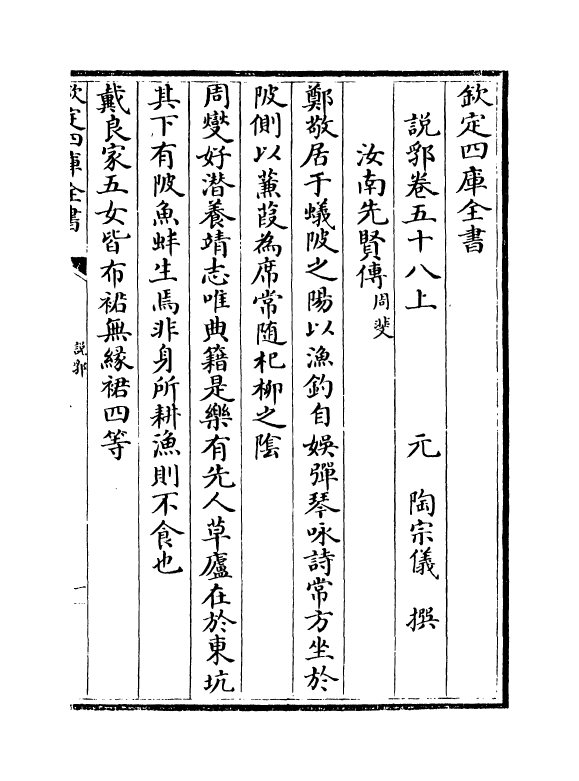 欽定四庫全書
說郛卷五十八上　元　陶宗儀　撰
汝南先賢傳周斐
鄭敬居于蟻陂之陽以漁釣自娛彈琴咏詩常方坐於
陂側以蒹葭為席常随杞柳之隂
周燮好潜養靖志唯典籍是樂有先人草廬在於東坑
其下有陂魚蚌生焉非身所耕漁則不食也
戴良家五女皆布裙無緣裙四等
欽定四庫全書
說郛
一